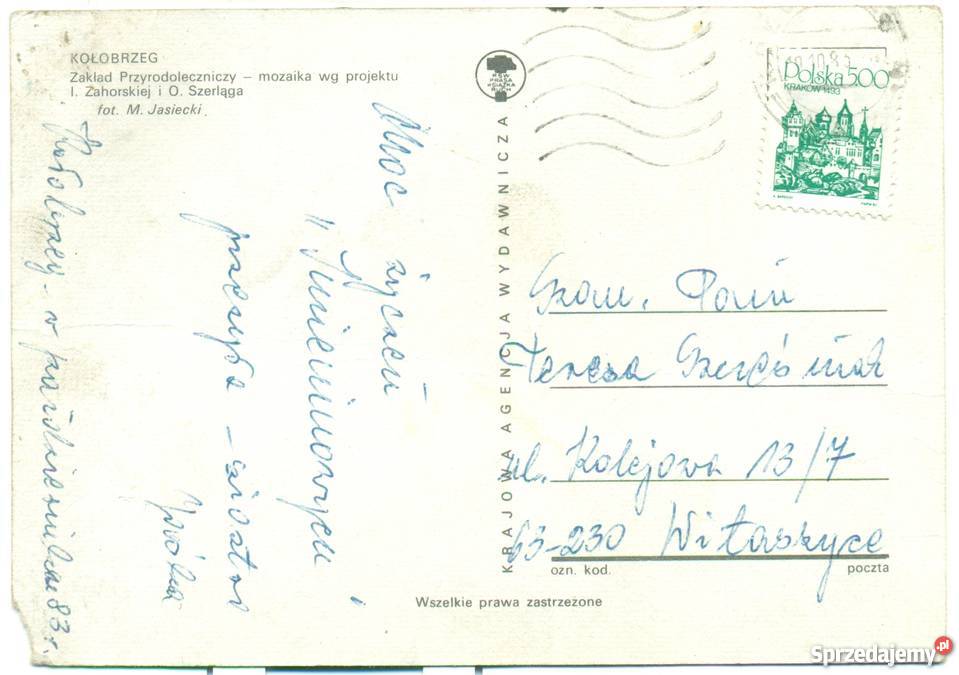 KOŁOBRZEG
Zakład Przyrodoleczniczy – mozaika wg projektu
I. Zahorskiej i O. Szerląga
fot. M. Jasiecki
RSW
PRASA
KSIĄŻKA
RUCH
KRAJOWA AGENCJA WYDAWNICZA
Polska 5,00
KRAKÓW 1493
Moc życzeń
Imieninowych
przesyła – siostra
Kołobrzeg – w październiku 83 r.
Szan. Pani
Teresa
ul. Kolejowa 13/7
63-230 Witaszyce
ozn. kod. poczta
Wszelkie prawa zastrzeżone
Sprzedajemy.pl